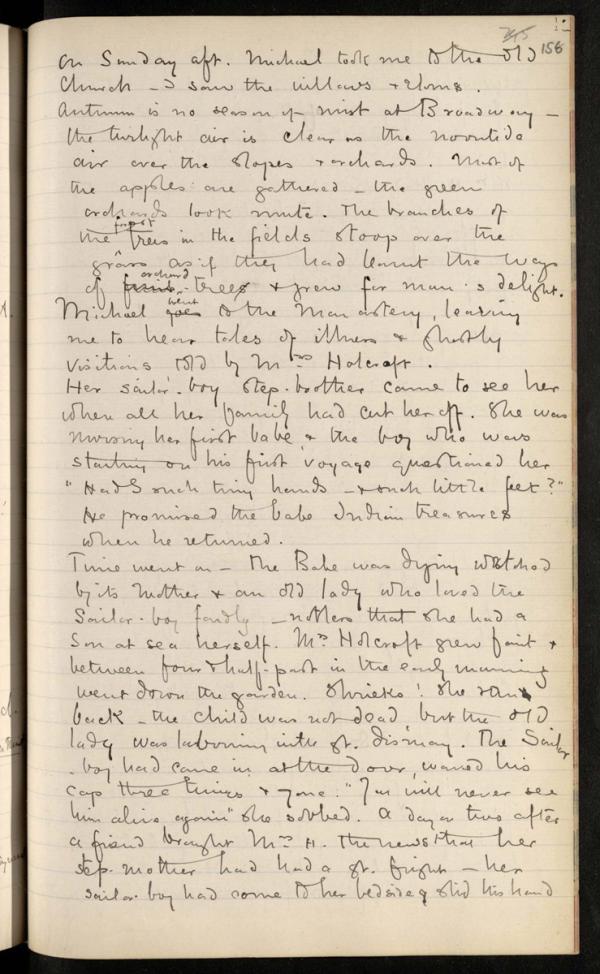 156
On Sunday aft. Michael took me to the old
Church – I saw the willows & elms.
Autumn is no season of mist at Broadway –
the twilight air is clear as the noontide
air over the slopes & orchards. Most of
the apples are gathered – the green
orchards look mute. The branches of
the forest trees in the fields stoop over the
grass as if they had learnt the ways
of orchard trees & grew for man's delight.
Michael went to the Monastery, leaving
me to hear tales of illness & ghostly
visitions told by Mrs Holcroft.
Her sailor-boy step-brother came to see her
when all her family had cut her off. She was
nursing her first babe & the boy who was
starting on his first voyage questioned her
"Had I such tiny hands – & such little feet?"
He promised the babe Indian treasures
when he returned.
Time went on – the Babe was dying watched
by its mother & an old lady who loved the
Sailor-boy fondly – nobless that she had a
Son at sea herself. Mrs Holcroft grew faint &
between four & half-past in the early morning
went down the garden. Shrieks! She ran
back – the child was not dead, but the old
lady was labouring with gt. dismay. The Sailor
-boy had come in at the door, waved his
cap three times & gone. "You will never see
him alive again" she sobbed. A day or two after
a friend brought Mrs H. the news that her
step-mother had had a gt. fright – her
sailor-boy had come to her bedside & slid his hand